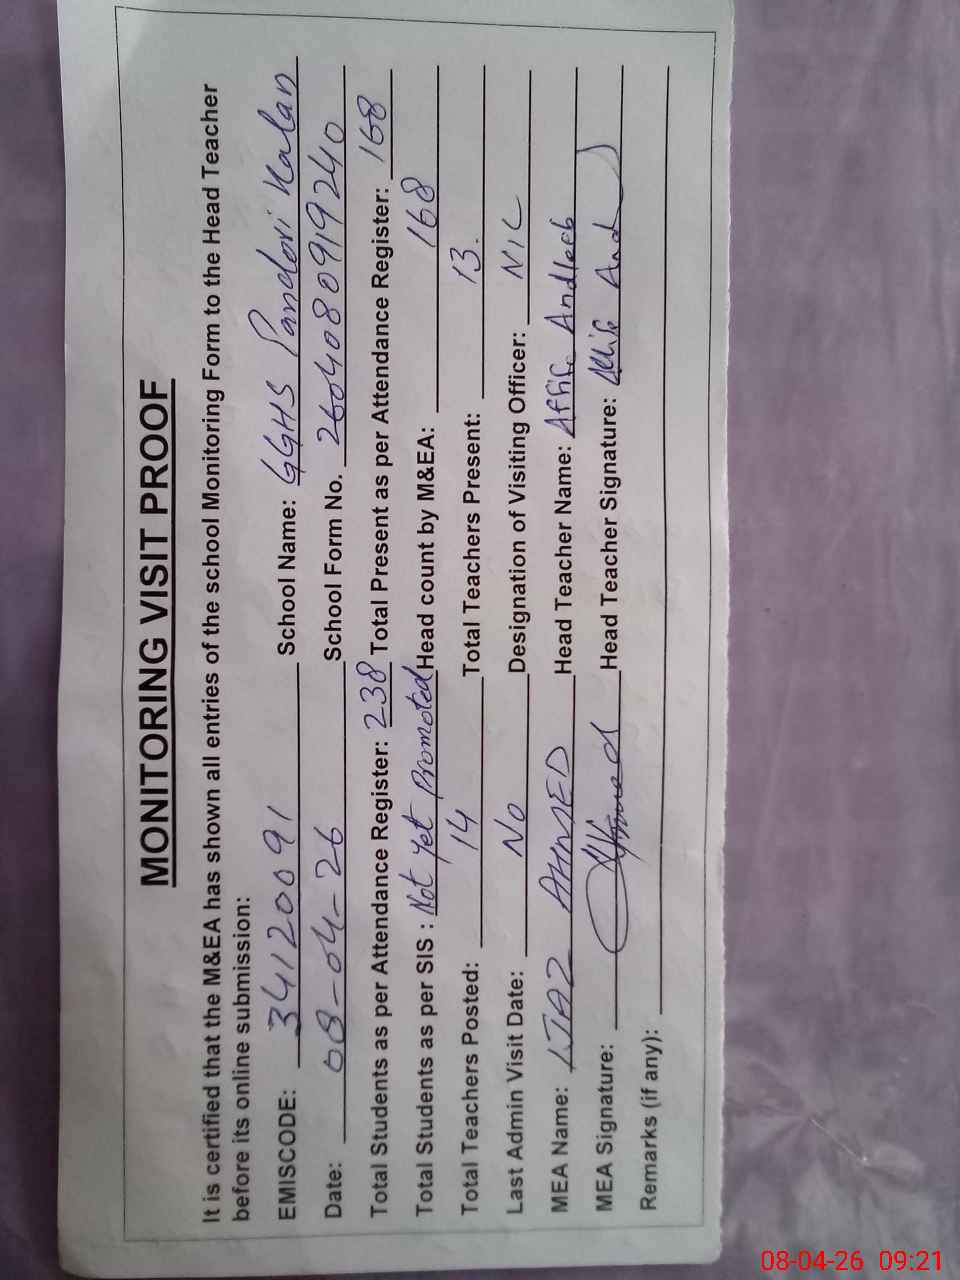 MONITORING VISIT PROOF
It is certified that the M&EA has shown all entries of the school Monitoring Form to the Head Teacher
before its online submission:
EMISCODE: 34120091 School Name: GGHS Pandori Kalan
Date: 08-04-26 School Form No. 2604080919240
Total Students as per Attendance Register: 238 Total Present as per Attendance Register: 168
Total Students as per SIS : Not yet Promoted Head count by M&EA: 168
Total Teachers Posted: 14 Total Teachers Present: 13.
Last Admin Visit Date: No Designation of Visiting Officer: NIL
MEA Name: IJAZ AHMED Head Teacher Name: Affife Andleeb
MEA Signature: Ahmed Head Teacher Signature:
Remarks (if any):
08-04-26 09:21